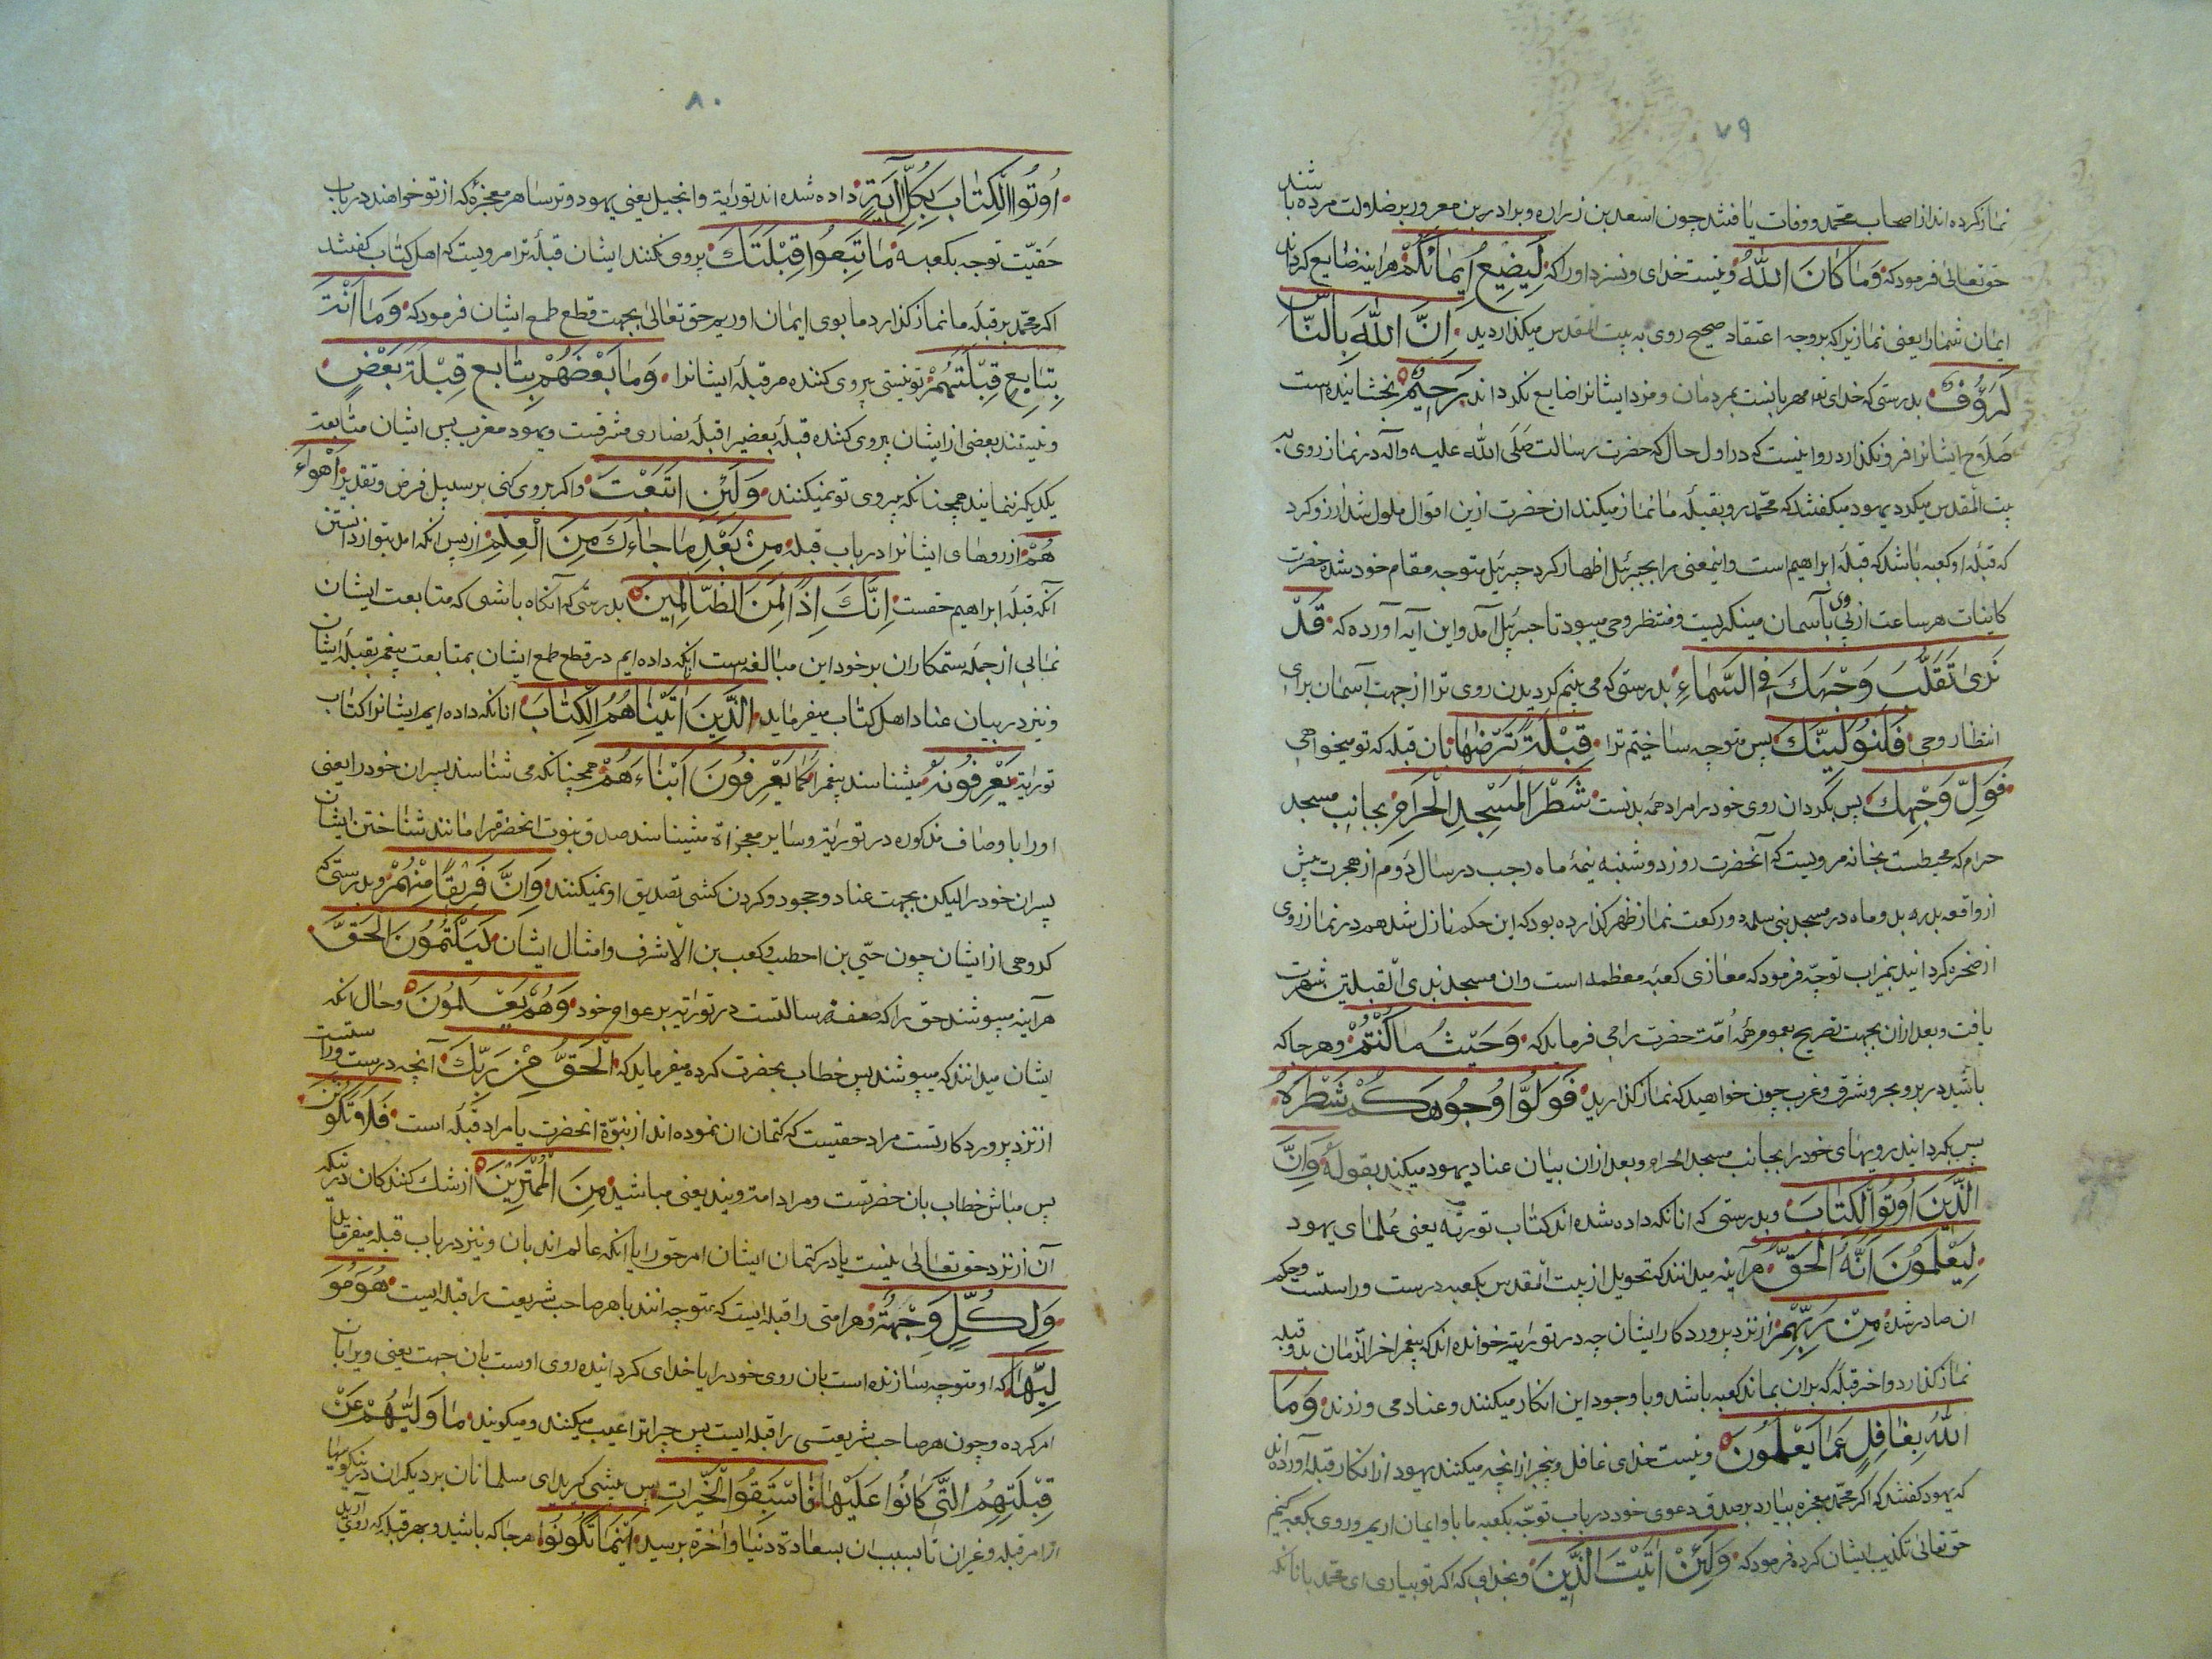 ۷۹
نماز کرده اند از اصحاب محمد و وفات یافتند چون اسعد بن زراره و برادر بن معرور بر ضلالت مرده باشند
حق تعالی فرمود که وَمَا كَانَ اللّٰهُ و نیست خدای و نسزد او را که لِيُضِيعَ اِيمَانَكُمْ هر اینه ضایع کرداند
ایمان شمارا یعنی نمازیرا که بر وجه اعتقاد صحیح روی به بیت المقدس میکذاردید اِنَّ اللّٰهَ بِالنَّاسِ
لَرَؤُفٌ بدرستی که خدای مهربانست بمردمان و مزد ایشانرا ضایع نکرداند رَحِيمٌ بخشاینده است
صلاح ایشانرا فرو نکذارد روایتست که در اول حال که حضرت رسالت صلی الله علیه و آله در نماز روی به
بیت المقدس میکرد یهود میکفتند که محمد رو بقبلۀ ما نماز میکند ان حضرت ازین اقوال ملول شد ارزو کرد
که قبلۀ او کعبه باشد که قبلۀ ابراهیم است و اینمعنی را بجبرئیل اظهار کرد جبرئیل متوجه مقام خود شد حضرت
کاینات هر ساعت از پی وی بآسمان مینکریست و منتظر وحی میبود تا جبرئیل آمد و این آیه آورده که قَدْ
نَرٰى تَقَلُّبَ وَجْهِكَ فِي السَّمَاءِ بدرستی که می بینم کردیدن روی ترا از جهت آسمان برای
انتظار وحی فَلَنُوَلِّيَنَّكَ پس متوجه ساختیم ترا قِبْلَةً تَرْضٰهَا بان قبله که تو میخواهی
فَوَلِّ وَجْهَكَ پس بکردان روی خود را مراد همه بدنست شَطْرَ الْمَسْجِدِ الْحَرَامِ بجانب مسجد
حرام که محیطست بخانه مرویست که آنحضرت روز دوشنبه نیمۀ ماه رجب در سال دوم از هجرت پیش
از واقعه بدر بدو ماه در مسجد بنی سلمه دو رکعت نماز ظهر کذارده بود که این حکم نازل شد هم در نماز روی
از صخره کردانید بمیزاب توجّه فرمود که محاذی کعبۀ معظمه است و ان مسجد بذی القبلتین شهرت
یافت و بعد ازان بجهت تصریح بعموم همۀ اُمّت حضرت را می فرماید که وَحَيْثُ مَا كُنْتُمْ و هر جا که
باشید در بر و بحر و شرق و غرب چون خواهید که نماز کذارید فَوَلُّوا وُجُوهَكُمْ شَطْرَهُ
پس بکردانید رویهای خود را بجانب مسجد الحرام و بعد ازان بیان عناد یهود میکند بقوله وَاِنَّ
الَّذِينَ اُوتُوا الْكِتَابَ و بدرستی که انانکه داده شده اند کتاب توریة یعنی عُلمای یهود
لَيَعْلَمُونَ اَنَّهُ الْحَقُّ هر آینه میدانند که تحویل از بیت المقدس بکعبه درست و راستست و حکم
ان صادر شده مِنْ رَبِّهِمْ از نزد پروردکار ایشان چه در توراتیه خوانده اند که پیغمبر اخر الزمان بدو قبله
نماز کذارد و اخر قبلۀ که بران بماند کعبه باشد و با وجود این انکار میکنند و عناد می ورزند وَمَا
اللّٰهُ بِغَافِلٍ عَمَّا يَعْلَمُونَ و نیست خدای غافل و بیخبر از انچه میکنند یهود از انکار قبله آورده اند
که یهود کفتند که اکر محمد معجزه بیارد بر صدق دعوی خود در باب توجّه بکعبه ما باو ایمان اریم و روی بکعبه کنیم
حق تعالی تکذیب ایشان کرده فرمود که وَلَئِنْ اَتَيْتَ الَّذِينَ و بخدای که اکر تو بیاری ای محمد بانانکه
۸۰
اُوتُوا الْكِتَابَ بِكُلِّ اٰيَةٍ داده شده اند توراية و انجیل یعنی یهود و ترسا هر معجزۀ که از تو خواهند در باب
حَقیّت توجه بکعبه مَا تَبِعُوا قِبْلَتَكَ پروی نکنند ایشان قبلۀ ترا مرویست که اهل کتاب کفتند
اکر محمد بر قبلۀ ما نماز کذارد ما بوی ایمان اوریم حق تعالی بجهت قطع طمع ایشان فرمود که وَمَا اَنْتَ
بِتَابِعٍ قِبْلَتَهُمْ تو نیستی پیروی کننده مر قبلۀ ایشانرا وَمَا بَعْضُهُمْ بِتَابِعٍ قِبْلَةَ بَعْضٍ
و نیستند بعضی از ایشان پیروی کننده قبلۀ بعضیرا قبلۀ نصاری مشرقست و یهود مغرب پس ایشان متابعت
یکدیکر ننمایند همچنانکه پیروی تو نمیکنند وَلَئِنِ اتَّبَعْتَ و اکر پیروی کنی بر سبیل فرض و تقدیر اَهْوَاءَ
هُمْ ارزوهای ایشانرا در باب قبله مِنْ بَعْدِ مَا جَاءَكَ مِنَ الْعِلْمِ از پس انکه امد بتو از دانستن
آنکه قبلۀ ابراهیم حقست اِنَّكَ اِذًا لَمِنَ الظَّالِمِينَ بدرستی که آنکاه باشی که متابعت ایشان
نمایی از جملۀ ستمکاران بر خود این مبالغه ست انکه داده ایم در قطع طمع ایشان بمتابعت پیغمبر بقبلۀ ایشان
و نیز در بیان عناد اهل کتاب میفرماید الَّذِينَ اٰتَيْنَاهُمُ الْكِتَابَ انانکه داده ایم ایشانرا کتاب
توراية يَعْرِفُونَهُ میشناسند پیغمبر را كَمَا يَعْرِفُونَ اَبْنَاءَهُمْ همچنانکه می شناسند پسران خود را یعنی
اورا باوصاف مذکوره در توراية و سایر معجزاة میشناسند صدق نبوت انحضرترا مانند شناختن ایشان
پسران خود را لیکن بجهت عناد و جحود و کردن کشی تصدیق او نمیکنند وَاِنَّ فَرِيقًا مِنْهُمْ و بدرستی که
کروهی از ایشان چون حیّی بن احطب و کعب بن الاشرف و امثال ایشان لَيَكْتُمُونَ الْحَقَّ
هر آینه میپوشند حق را که صفة رسالتست در توراتیه بر عوام خود وَهُمْ يَعْلَمُونَ و حال انکه
ایشان میدانند که میپوشند پس خطاب بحضرت کرده میفرماید که الْحَقُّ مِنْ رَبِّكَ آنچه درست و راستست
از نزد پروردکار تست مراد حقیست که کتمان ان نموده اند از نبوّة انحضرت یا مراد قبله است فَلَا تَكُونَنَّ
پس مباش خطاب بان حضرتست و مراد امة ویند یعنی مباشید مِنَ الْمُمْتَرِينَ از شک کنندکان در انکه
آن از نزد حق تعالی نیست یا در کتمان ایشان امر حق را با انکه عالم اند بان و نیز در باب قبله میفرماید
وَلِكُلٍّ وِجْهَةٌ و هر امتی را قبله ایست که متوجه انند یا هر صاحب شریعت را قبله ایست هُوَ مُوَ
لِّيهَا که او متوجه سازنده است بان روی خود را یا خدای کرداننده روی اوست بان جهت یعنی ویرا بان
امر کرده و چون هر صاحب شریعتی را قبله ایست پس چرا ترا عیب میکنند و میکویند مَا وَلّٰيهُمْ عَنْ
قِبْلَتِهِمُ الَّتِي كَانُوا عَلَيْهَا فَاسْتَبِقُوا الْخَيْرَاتِ پس پیشی کیرید ای مسلمانان بر دیکران در نیکوییها
از امر قبله و غیر ان تا بسبب ان بسعادة دنیا و اخرة برسید اَيْنَمَا تَكُونُوا هر جا که باشید و بهر قبله که روی آرید